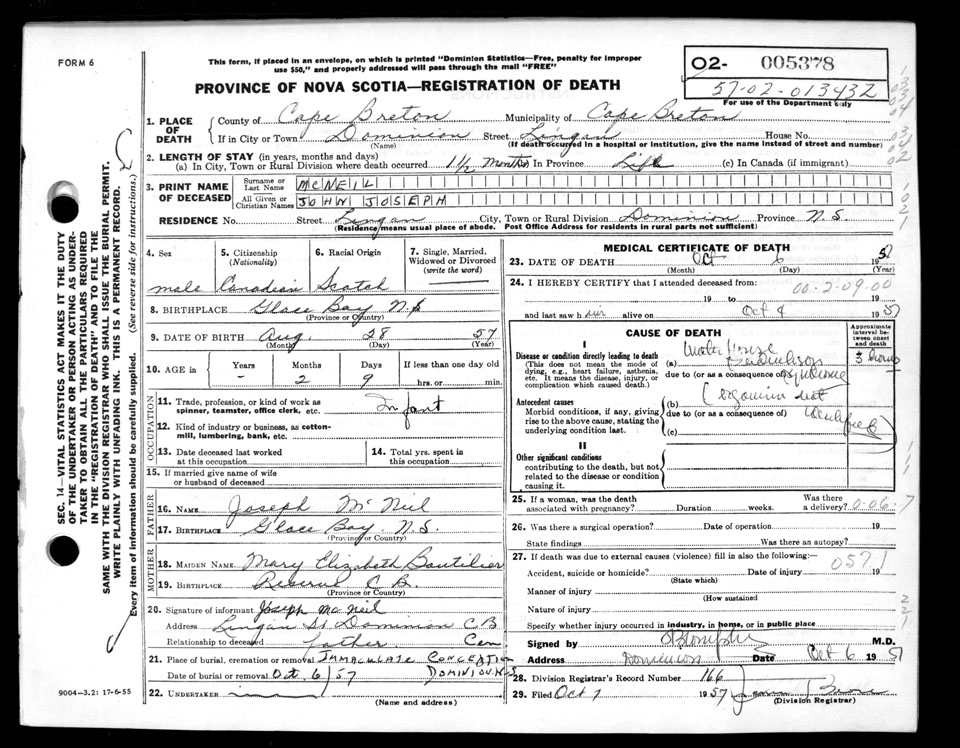 FORM 6
This form, if placed in an envelope, on which is printed "Dominion Statistics—Free, penalty for improper
use $50," and properly addressed will pass through the mail "FREE"
O2- 005378
57-02-013432
For use of the Department only
PROVINCE OF NOVA SCOTIA—REGISTRATION OF DEATH
1. PLACE OF DEATH
County of Cape Breton Municipality of Cape Breton
If in City or Town Dominion Street Lingan House No.
(Name) (If death occurred in a hospital or institution, give the name instead of street and number)
2. LENGTH OF STAY (in years, months and days)
(a) In City, Town or Rural Division where death occurred 1 1/2 months In Province Life (c) In Canada (if immigrant)
3. PRINT NAME OF DECEASED
Surname or Last Name McNEIL
All Given or Christian Names JOHN JOSEPH
RESIDENCE No. Street Lingan City, Town or Rural Division Dominion Province N.S.
(Residence means usual place of abode. Post Office Address for residents in rural parts not sufficient)
4. Sex
male
5. Citizenship (Nationality)
Canadian
6. Racial Origin
Scotch
7. Single, Married, Widowed or Divorced (write the word)
8. BIRTHPLACE Glace Bay N.S
(Province or Country)
9. DATE OF BIRTH Aug. 28 57
(Month) (Day) (Year)
10. AGE in
Years Months Days If less than one day old
- 2 9 hrs. or min.
OCCUPATION
11. Trade, profession, or kind of work as
spinner, teamster, office clerk, etc. Infant
12. Kind of industry or business, as cotton-
mill, lumbering, bank, etc.
13. Date deceased last worked
at this occupation
14. Total yrs. spent in
this occupation
15. If married give name of wife
or husband of deceased
FATHER
16. NAME Joseph McNeil
17. BIRTHPLACE Glace Bay, N.S.
(Province or Country)
MOTHER
18. MAIDEN NAME Mary Elizabeth Boutilier
19. BIRTHPLACE Reserve C.B.
(Province or Country)
20. Signature of informant Joseph McNeil
Address Lingan St Dominion C B
Relationship to deceased father
21. Place of burial, cremation or removal IMMACULATE CONCEPTION
Date of burial or removal Oct. 6/57 DOMINION. N.S
22. UNDERTAKER
(Name and address)
MEDICAL CERTIFICATE OF DEATH
23. DATE OF DEATH Oct 6 1957
(Month) (Day) (Year)
24. I HEREBY CERTIFY that I attended deceased from:
00-2-09-00
19 to 19
and last saw h alive on Oct 1957
CAUSE OF DEATH
Approximate interval between onset and death
I
Disease or condition directly leading to death
(This does not mean the mode of
dying, e.g., heart failure, asthenia,
etc. It means the disease, injury, or
complication which caused death.)
(a) Waterhouse
due to (or as a consequence of)
Antecedent causes
Morbid conditions, if any, giving
rise to the above cause, stating the
underlying condition last.
(b)
due to (or as a consequence of)
(c)
II
Other significant conditions
contributing to the death, but not
related to the disease or condition
causing it.
25. If a woman, was the death
associated with pregnancy? Duration weeks. Was there
a delivery?
26. Was there a surgical operation? Date of operation 19
State findings Was there an autopsy?
27. If death was due to external causes (violence) fill in also the following: 0571
Accident, suicide or homicide? Date of injury 19
(State which)
Manner of injury
(How sustained
Nature of injury
Specify whether injury occurred in industry, in home, or in public place
Signed by M.D.
Address Dominion Date Oct 6 1957
28. Division Registrar's Record Number 166
29. Filed Oct 7 1957
(Division Registrar)
SEC. 14—VITAL STATISTICS ACT MAKES IT THE DUTY
OF THE UNDERTAKER OR PERSON ACTING AS UNDER-
TAKER TO OBTAIN ALL THE PARTICULARS REQUIRED
IN THE "REGISTRATION OF DEATH" AND TO FILE THE
SAME WITH THE DIVISION REGISTRAR WHO SHALL ISSUE THE BURIAL PERMIT.
WRITE PLAINLY WITH UNFADING INK. THIS IS A PERMANENT RECORD.
Every item of information should be carefully supplied. (See reverse side for instructions.)
9004-3.2: 17-6-55